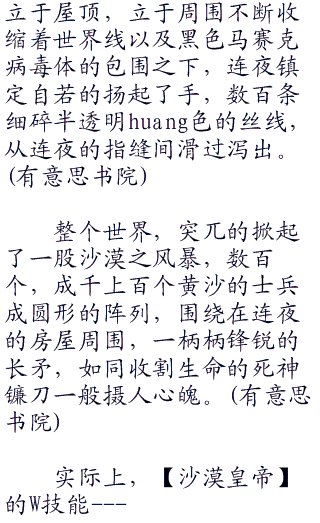 立于屋顶，立于周围不断收
缩着世界线以及黑色马赛克
病毒体的包围之下，连夜镇
定自若的扬起了手，数百条
细碎半透明huang色的丝线，
从连夜的指缝间滑过泻出。
(有意思书院)
整个世界，突兀的掀起
了一股沙漠之风暴，数百
个，成千上百个黄沙的士兵
成圆形的阵列，围绕在连夜
的房屋周围，一柄柄锋锐的
长矛，如同收割生命的死神
镰刀一般摄人心魄。(有意思
书院)
实际上，【沙漠皇帝】
的W技能---